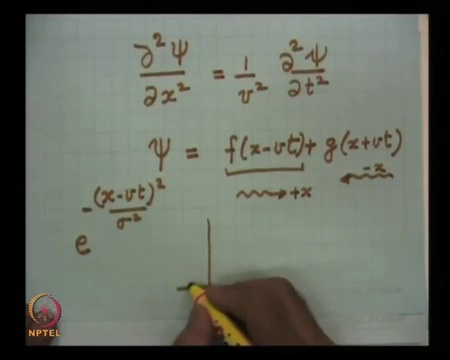 ∂²ψ/∂x² = 1/v² ∂²ψ/∂t²
ψ = f(x-vt) + g(x+vt)
→ +x ← -x
e^(-(x-vt)²/σ²)
NPTEL